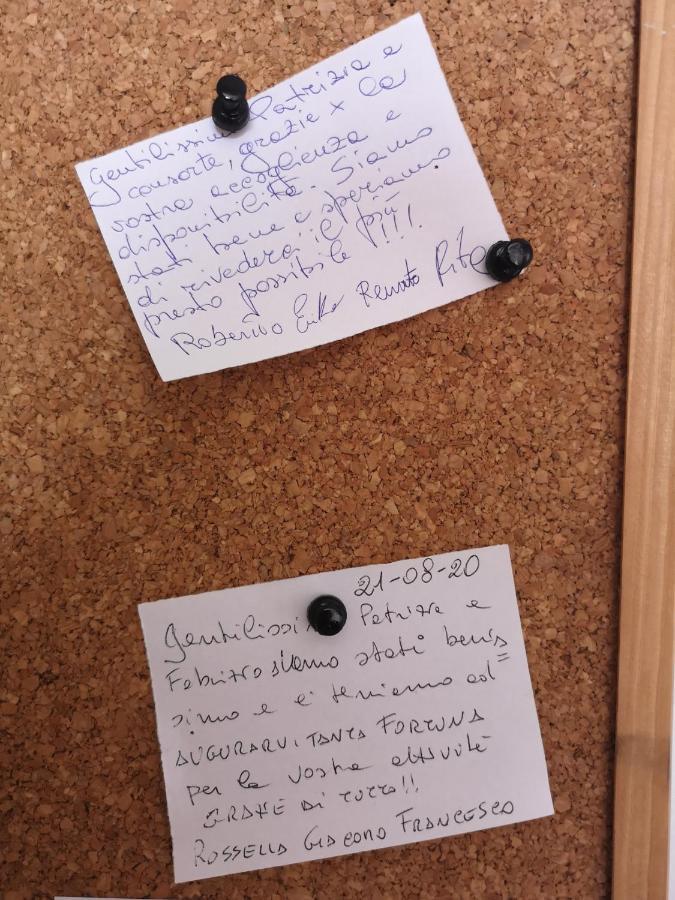 Gentilissim Patrizia e
consorte, grazie x la
vostra accoglienza e
disponibilità. Siamo
stati bene e speriamo
di rivederci il più
presto possibile!!!
Roberto Renato Rita
21-08-20
Gentilissi Patrizia e
Fabrizio siamo stati benis
simo e ci teniamo ad=
AUGURARVI TANTA FORTUNA
per la vostra attività
GRAZIE DI TUTTO!!
ROSSELLA GIACOMO FRANCESCO